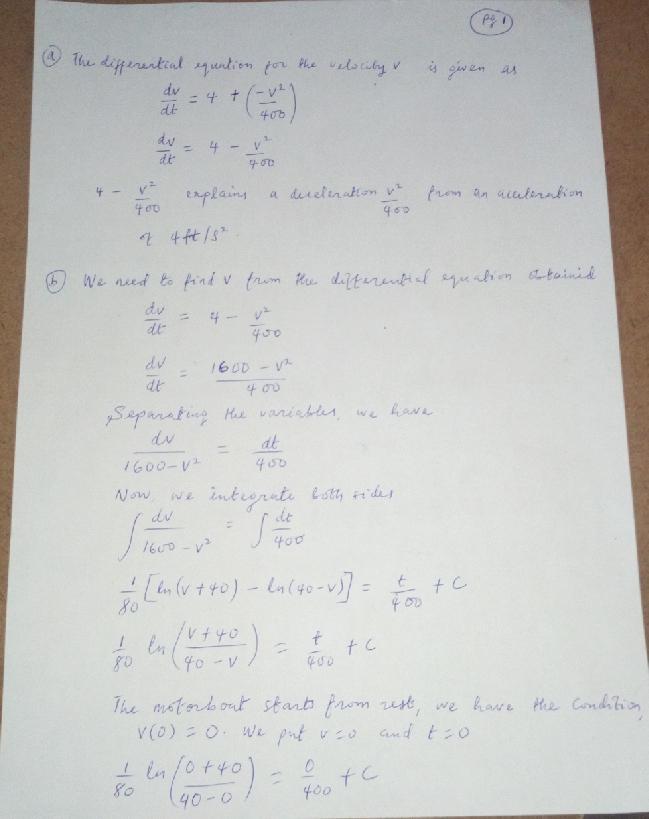 pg 1
(a) The differential equation for the velocity v is given as
dv/dt = 4 + (-v²/400)
dv/dt = 4 - v²/400
4 - v²/400 explains a deceleration v²/400 from an acceleration
of 4ft/s².
(b) We need to find v from the differential equation obtained
dv/dt = 4 - v²/400
dv/dt = 1600 - v²/400
Separating the variables, we have
dv/1600-v² = dt/400
Now, we integrate both sides
∫ dv/1600-v² = ∫ dt/400
1/80 [ln(v+40) - ln(40-v)] = t/400 + C
1/80 ln(v+40/40-v) = t/400 + C
The motorboat starts from rest, we have the condition,
v(0) = 0. We put v=0 and t=0
1/80 ln(0+40/40-0) = 0/400 + C